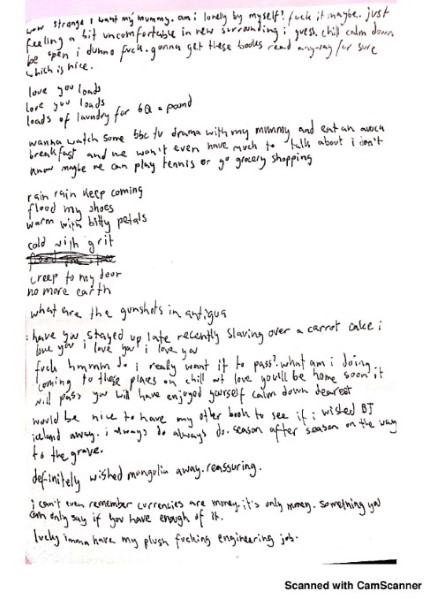 how strange i want my mummy. am i lonely by myself? fuck it maybe. just
feeling a bit uncomfortable in new surrounding i guess. chill calm down
be open i dunno fuck. gonna get these books read anyway for sure
which is nice.
love you loads
love you loads
loads of laundry for 6 a pound
wanna watch some bbc tv drama with my mummy and eat an
breakfast and we won't even have much to talk about i don't
know maybe we can play tennis or go grocery shopping
rain rain keep coming
flood my shoes
warm with bitty petals
cold with grit
creep to my door
no more earth
what are the gunshots in antigua
have you stayed up late recently slaving over a carrot cake i
love you i love you i love you
fuck hmmm do i really want it to pass? what am i doing
coming to these places oh chill wt love you'll be home soon it
will pass you will have enjoyed yourself calm down dearest
would be nice to have my other book to see if i wished
iceland away. i always do always do. season after season on the way
to the grave.
definitely wished mongolia away. reassuring.
i can't even remember currencies are money. it's only money. something you
can only say if you have enough of it.
lucky imma have my plush fucking engineering job.
Scanned with CamScanner